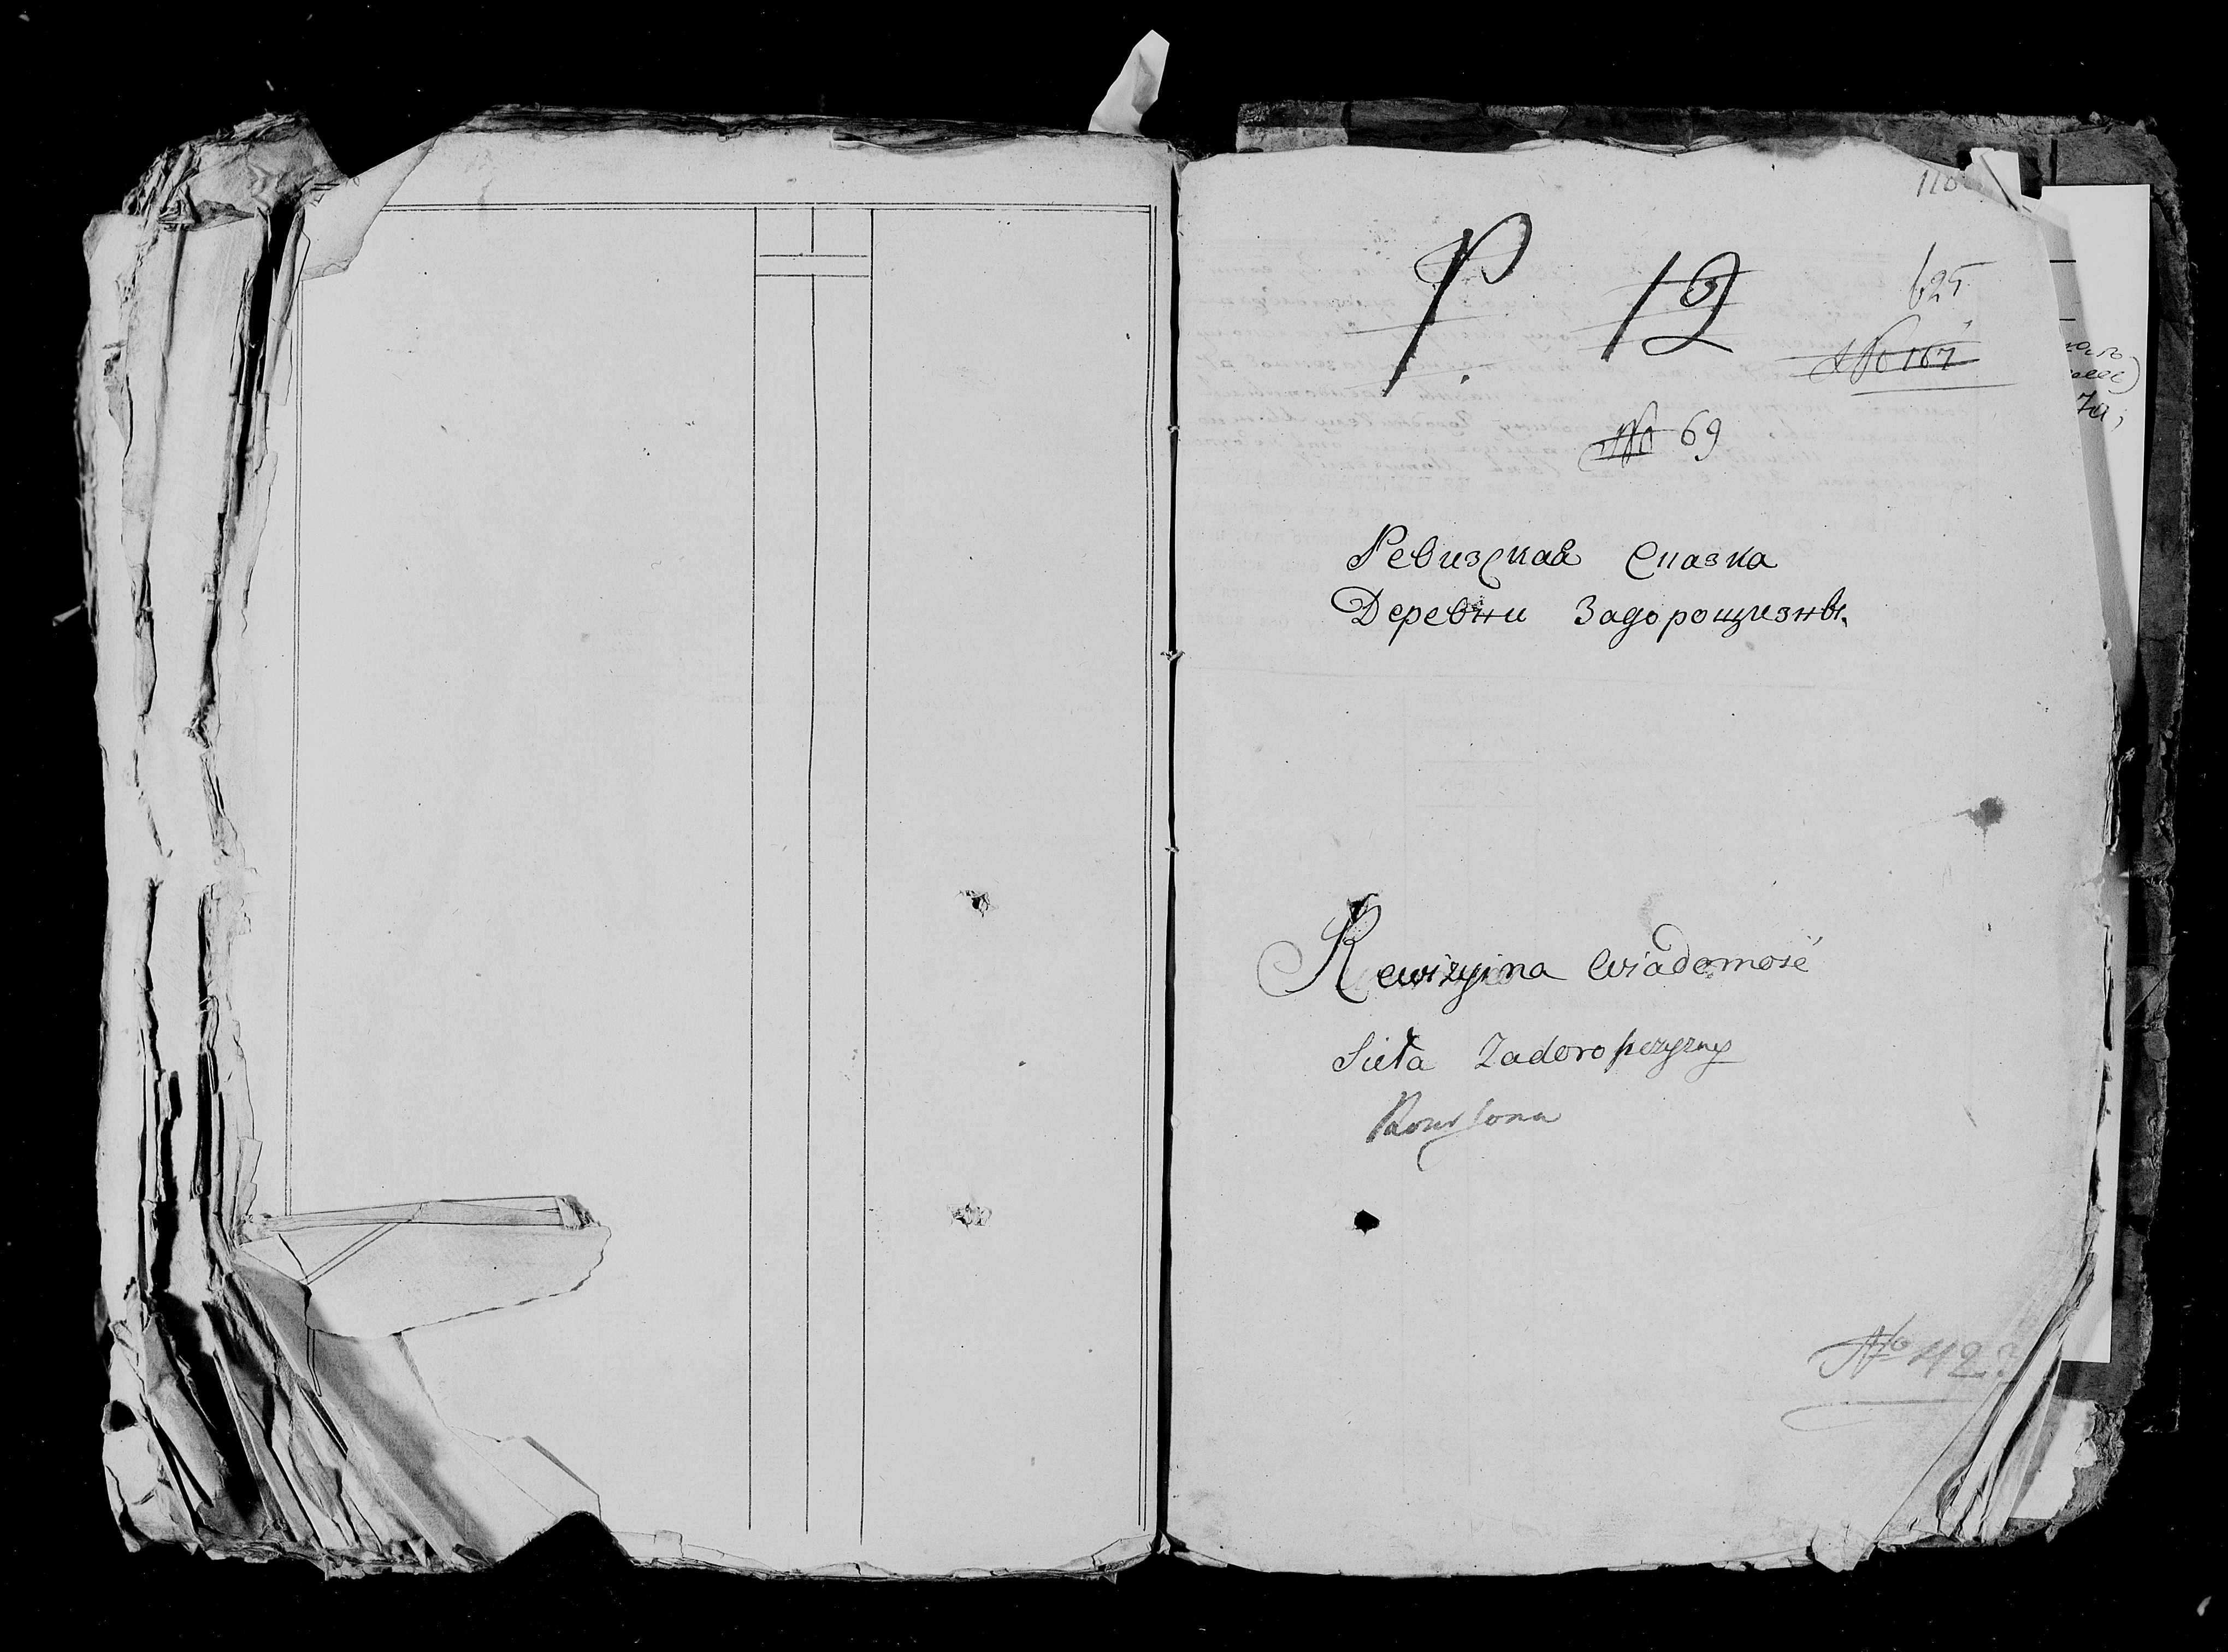 P. 12
625
№ 167
№ 69
Ревизская Сказка
Деревни Задорощизны.
Rewizyina Wiadomość
Sieła Zadoroszczyzny
№ 423